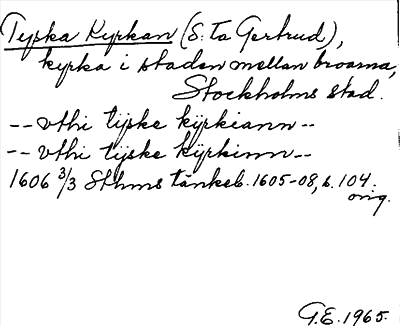 Tyska Kyrkan (S:ta Gertrud),
kyrka i staden mellan broarna,
Stockholms stad.
-- vthi tijske kÿrkiann --
-- vthi tijske kÿrkinn --
1606 3/3 Sthms tänkeb. 1605-08, s. 104.
orig.
G.E. 1965.